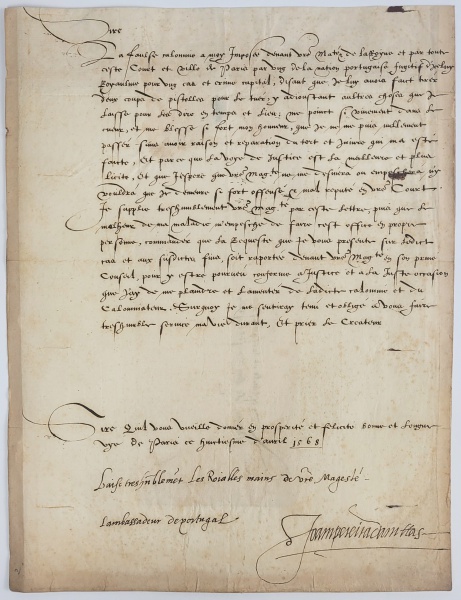 Sire
La faulse calomnie a moy Imposée devant vre Mate de laffayre et par toute
ceste Court et ville de Paris par ung de la nation portugaise fugitif d'icelluy
Royaulme pour ung cas et crime capital, disant que Je luy avois faict tirer
deux coups de pistolles pour le tuer, y adioustant aultres choses que Je
laisse pour les dire en temps et lieu, me poinct si vivement dans le
cueur, et me blesse si fort mon honneur, que Je ne me puis nullement
passer sans avoir raison et reparation du tort et Iniure qui ma esté
faicte, Et par ce que la voye de Justice est la meilleure et plus
licite, Et que J'espere que vre Magte ne me desnira ou
vouldra que Je demeure si fort offensé & mal reputé en vre Court
Je supplie treshumblement vre Magte par ceste lettre, puis que le
malheur de ma maladie m'empesche de faire cest office en propre
personne, commander que la Requeste que Je vous presente sur ledict
cas et aux susdictes fins, soit raportée devant vre Magte en son privé
Conseil, pour y estre pourveu conforme a Justice et a la Juste occasion
que J'ay de me plaindre et Lamenter de ladicte calomnie et du
Calomniateur. Surquoy Je me sentiray tenu et obligé a vous faire
treshumble service ma vie durant, Et prier le Createur
Sire Quil vous vueille donner en prosperité et felicité bonne et longue
vye de Paris ce huictiesme d'avril 1568
baise tres humblemēt Les Roialles mains de vre Magesté
Lambassadeur de portugal
Joam pereira dantas